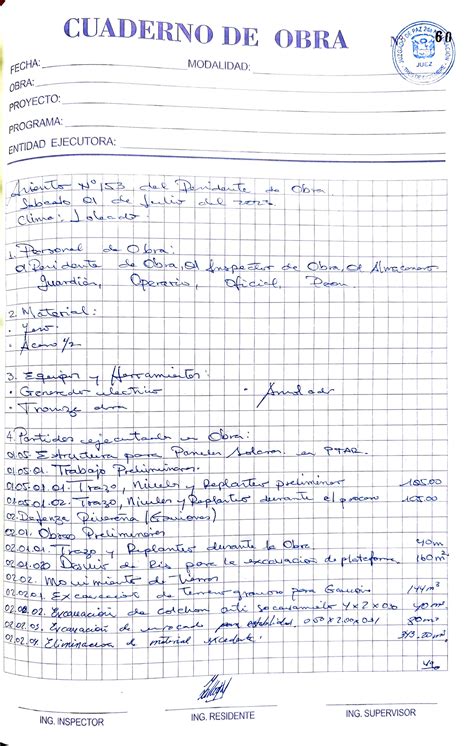 CUADERNO DE OBRA
Nº 60
JUZGADO DE PAZ
JUEZ
FECHA:
MODALIDAD:
OBRA:
PROYECTO:
PROGRAMA:
ENTIDAD EJECUTORA:
Asiento Nº 153 del Residente de Obra.
Sabado 01 de Julio del
Clima: Soleado.
1. Personal de Obra:
01 Residente de Obra, 01 Inspector de Obra, 01 Almacenero
Guardián, Operario, Oficial, Peon.
2. Material:
· Yeso.
· Acero 1/2
3. Equipos y Herramientas:
· Generador electrico
· Amolador
4. Partidas ejecutadas en Obra:
01.05. Estructura para Paneles Solares en PTAR.
01.05.01. Trabajo Preliminares.
01.05.01.01. Trazo, Niveles y Replanteo preliminar 105.00
01.05.01.02. Trazo, Niveles y Replanteo durante el proceso 105.00
02. Defensa Riverena (Gaviones)
02.01. Obras Preliminares
02.01.01. Trazo y Replanteo durante la Obra. 40m
02.01.02 Desvio de Rio para la excavacion de plataforma 160m²
02.02. Movimiento de tierras
02.02.01. Excavacion de terreno gravoso para Gavion 144m³
02.02.02. Excavación de colchon anti socavamiento 4x2x0.5 40m³
02.02.03. Excavación de enrocado para estabilidad 80m³
02.02.04. Eliminacion de material excedente. 313.20m³
ING. INSPECTOR
ING. RESIDENTE
ING. SUPERVISOR